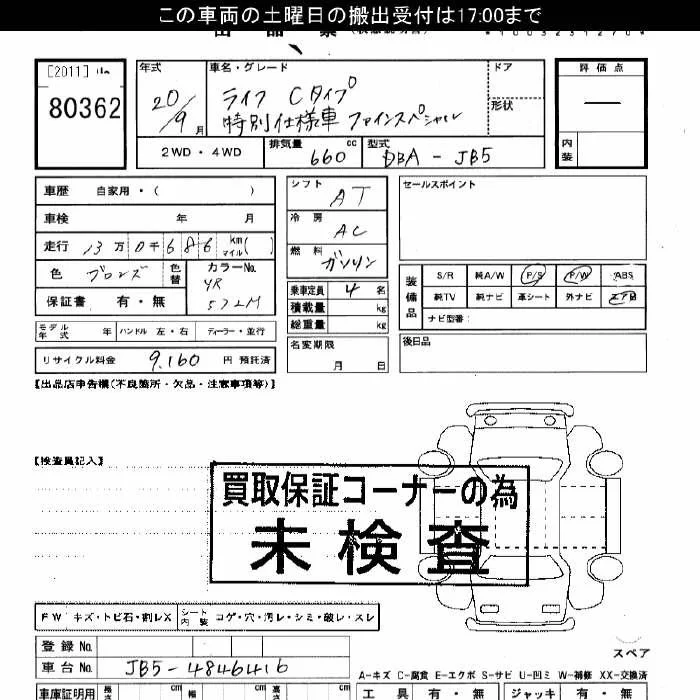 この車両の土曜日の搬出受付は17:00まで
[2011]
80362
年式
20/9月
車名・グレード
ライフ Cタイプ
特別仕様車 ファインスペシャル
ドア
形状
評価点
—
内装
2WD・4WD
排気量 660 cc
型式 DBA-JB5
車歴 自家用・( )
車検 年 月
走行 13万0千686 km マイル( )
色 ブロンズ 色替
カラーNo. YR572M
保証書 有・無
シフト AT
冷房 AC
燃料 ガソリン
乗車定員 4 名
積載量 kg
総重量 kg
セールスポイント
装備品
S/R 純A/W P/S P/W ABS
純TV 純ナビ 革シート 外ナビ エアB
ナビ型番:
モデル年式 年 ハンドル 左・右 ディーラー・並行
名変期限 月 日
後日品
リサイクル料金 9,160 円 預託済
【出品店申告欄(不良箇所・欠品・注意事項等)】
【検査員記入】
買取保証コーナーの為
未検査
FW キズ・トビ石・割レX
シート内装 コゲ・穴・汚レ・シミ・破レ・スレ
登録No.
車台No. JB5-4846416
スペア
A-キズ C-腐食 E-エクボ S-サビ U-凹ミ W-補修 XX-交換済
車庫証明用 長さ cm 幅 cm 高さ cm
工具 有・無 ジャッキ 有・無